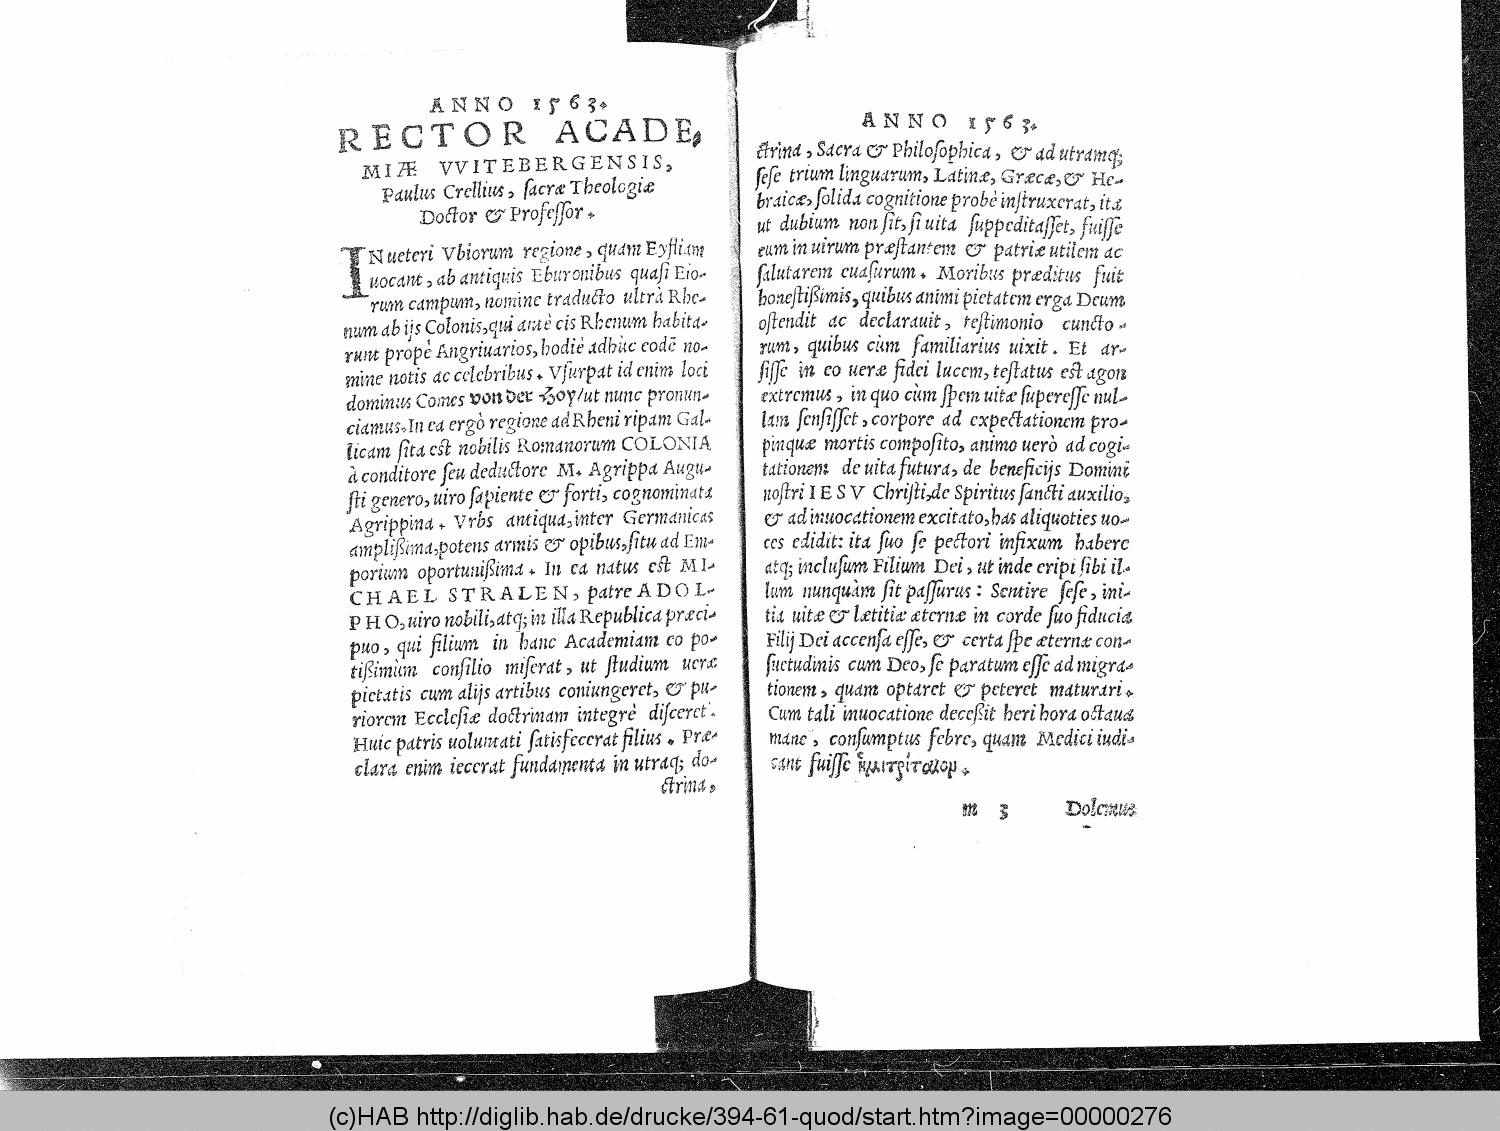 ANNO 1563.
RECTOR ACADE,
MIÆ VVITEBERGENSIS,
Paulus Crellius, ſacræ Theologiæ
Doctor & Profeſſor.
IN ueteri Vbiorum regione, quam Eyfliam
uocant, ab antiquis Eburonibus quaſi Eio-
rum campum, nomine traducto ultrà Rhe-
num ab ijs Colonis, qui antè cis Rhenum habita-
runt propè Angriuarios, hodiè adhùc eodē no-
mine notis ac celebribus. Vſurpat id enim loci
dominus Comes von der Hoy/ut nunc pronun-
ciamus. In ea ergò regione ad Rheni ripam Gal-
licam ſita est nobilis Romanorum COLONIA
à conditore ſeu deductore M. Agrippa Augu-
ſti genero, uiro ſapiente & forti, cognominata
Agrippina. Vrbs antiqua, inter Germanicas
ampliſsima, potens armis & opibus, ſitu ad Em-
porium oportuniſsima. In ea natus est MI-
CHAEL STRALEN, patre ADOL-
PHO, uiro nobili, atq; in illa Republica præci-
puo, qui filium in hanc Academiam eo po-
tiſsimùm conſilio miſerat, ut ſtudium ueræ
pietatis cum alijs artibus coniungeret, & pu-
riorem Eccleſiæ doctrinam integrè diſceret.
Huic patris uoluntati ſatisfecerat filius. Præ-
clara enim iecerat fundamenta in utraq; do-
ctrina,
ANNO 1563.
ctrina, Sacra & Philoſophica, & ad utramq;
ſeſe trium linguarum, Latinæ, Græcæ, & He-
braicæ, ſolida cognitione probè inſtruxerat, ita
ut dubium non ſit, ſi uita ſuppeditaſſet, fuiſſe
eum in uirum præſtantem & patriæ utilem ac
ſalutarem euaſurum. Moribus præditus fuit
honeſtiſsimis, quibus animi pietatem erga Deum
oſtendit ac declarauit, teſtimonio cuncto-
rum, quibus cùm familiarius uixit. Et ar-
ſiſſe in eo ueræ fidei lucem, teſtatus eſt agon
extremus, in quo cùm ſpem uitæ ſupereſſe nul-
lam ſenſiſſet, corpore ad expectationem pro-
pinquæ mortis compoſito, animo uerò ad cogi-
tationem de uita futura, de beneficijs Domini
noſtri IESV Chriſti, de Spiritus ſancti auxilio,
& ad inuocationem excitato, has aliquoties uo-
ces edidit: ita ſuo ſe pectori infixum habere
atq; incluſum Filium Dei, ut inde eripi ſibi il-
lum nunquàm ſit paſſurus: Sentire ſeſe, ini-
tia uitæ & lætitiæ æternæ in corde ſuo fiducia
Filij Dei accenſa eſſe, & certa ſpe æternæ con-
ſuetudinis cum Deo, ſe paratum eſſe ad migra-
tionem, quam optaret & peteret maturari.
Cum tali inuocatione deceſsit heri hora octaua
mane, conſumptus febre, quam Medici iudi-
cant fuiſſe ἡμιτριταῖον.
m 3 Dolemus
(c)HAB http://diglib.hab.de/drucke/394-61-quod/start.htm?image=00000276